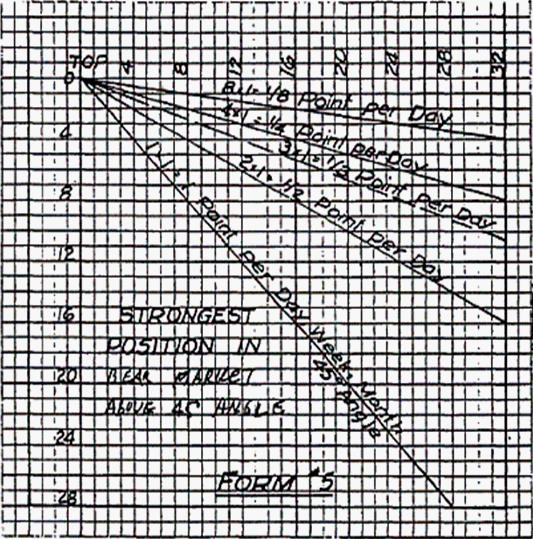 TOP 4 8 12 16 20 24 28 32
0
4
8
12
16
20
24
28
8x1 = 1/8 Point per Day
4x1 = 1/4 Point per Day
3x1 = 1/3 Point per Day
2x1 = 1/2 Point per Day
1x1 = 1 Point per Day Week, Month
45° Angle
STRONGEST
POSITION IN
BEAR MARKET
ABOVE 45 ANGLE
FORM #5